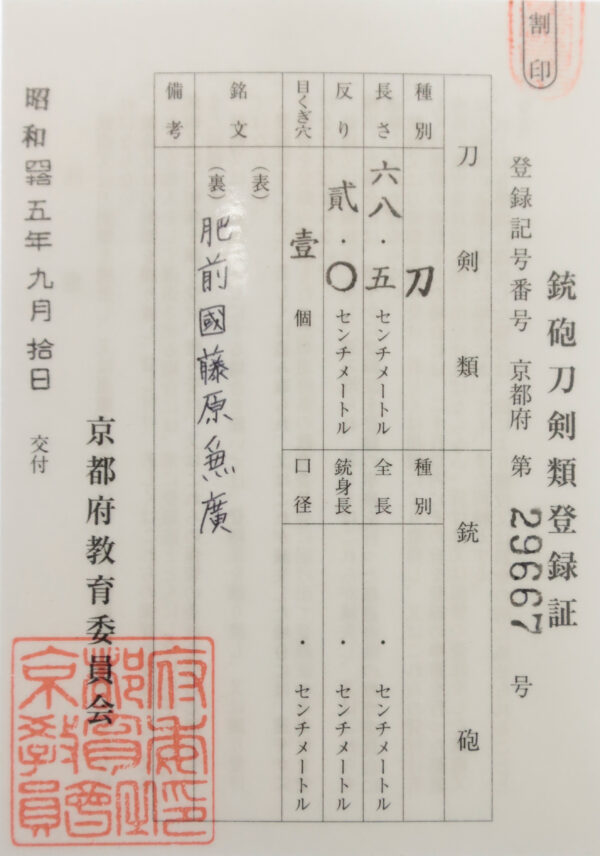 割印
銃砲刀剣類登録証
登録記号番号 京都府 第 29667 号
刀剣類
種別 刀
長さ 六八・五 センチメートル
反り 貳・〇 センチメートル
目くぎ穴 壹 個
銘文
(表)
(裏) 肥前國藤原兼廣
備考
銃砲
種別
全長 ・ センチメートル
銃身長 ・ センチメートル
口径 ・ センチメートル
昭和四拾五年九月拾日 交付
京都府教育委員会
京都府教育委員會之印